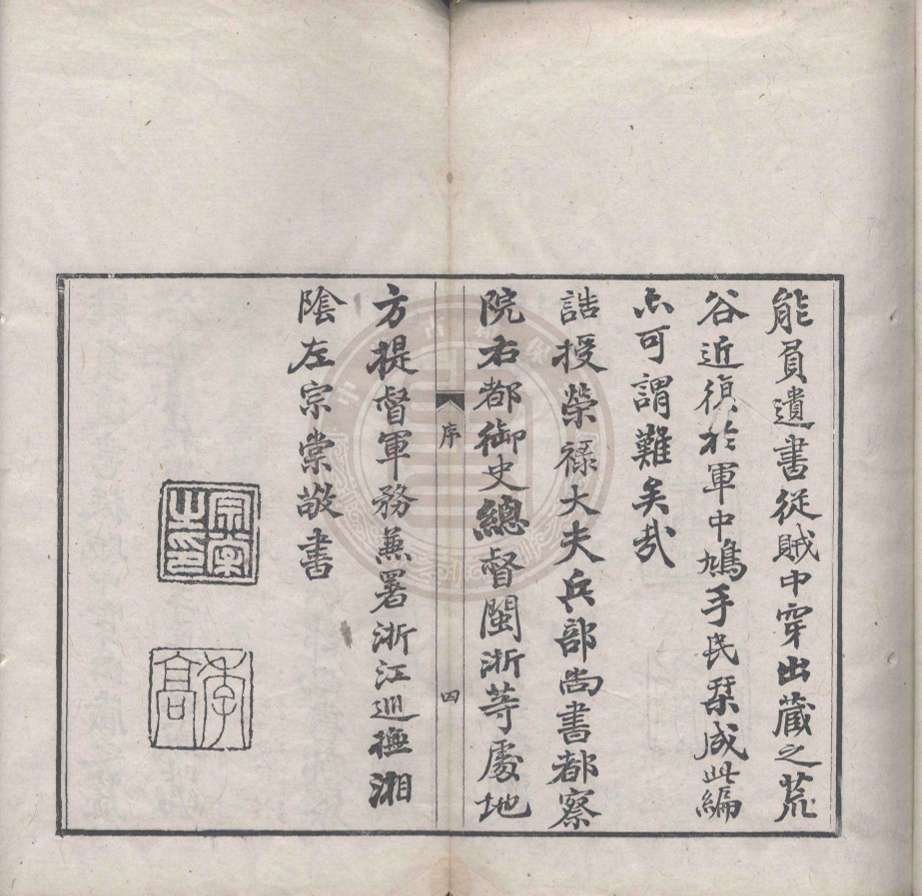 能負遺書從賊中穿出藏之荒
谷近復於軍中鳩手民栞成此編
亦可謂難矣哉
誥授榮禄大夫兵部尚書都察
院右都御史總督閩浙等處地
序
四
方提督軍務兼署浙江巡撫湘
陰左宗棠敬書
宗棠之印
季高